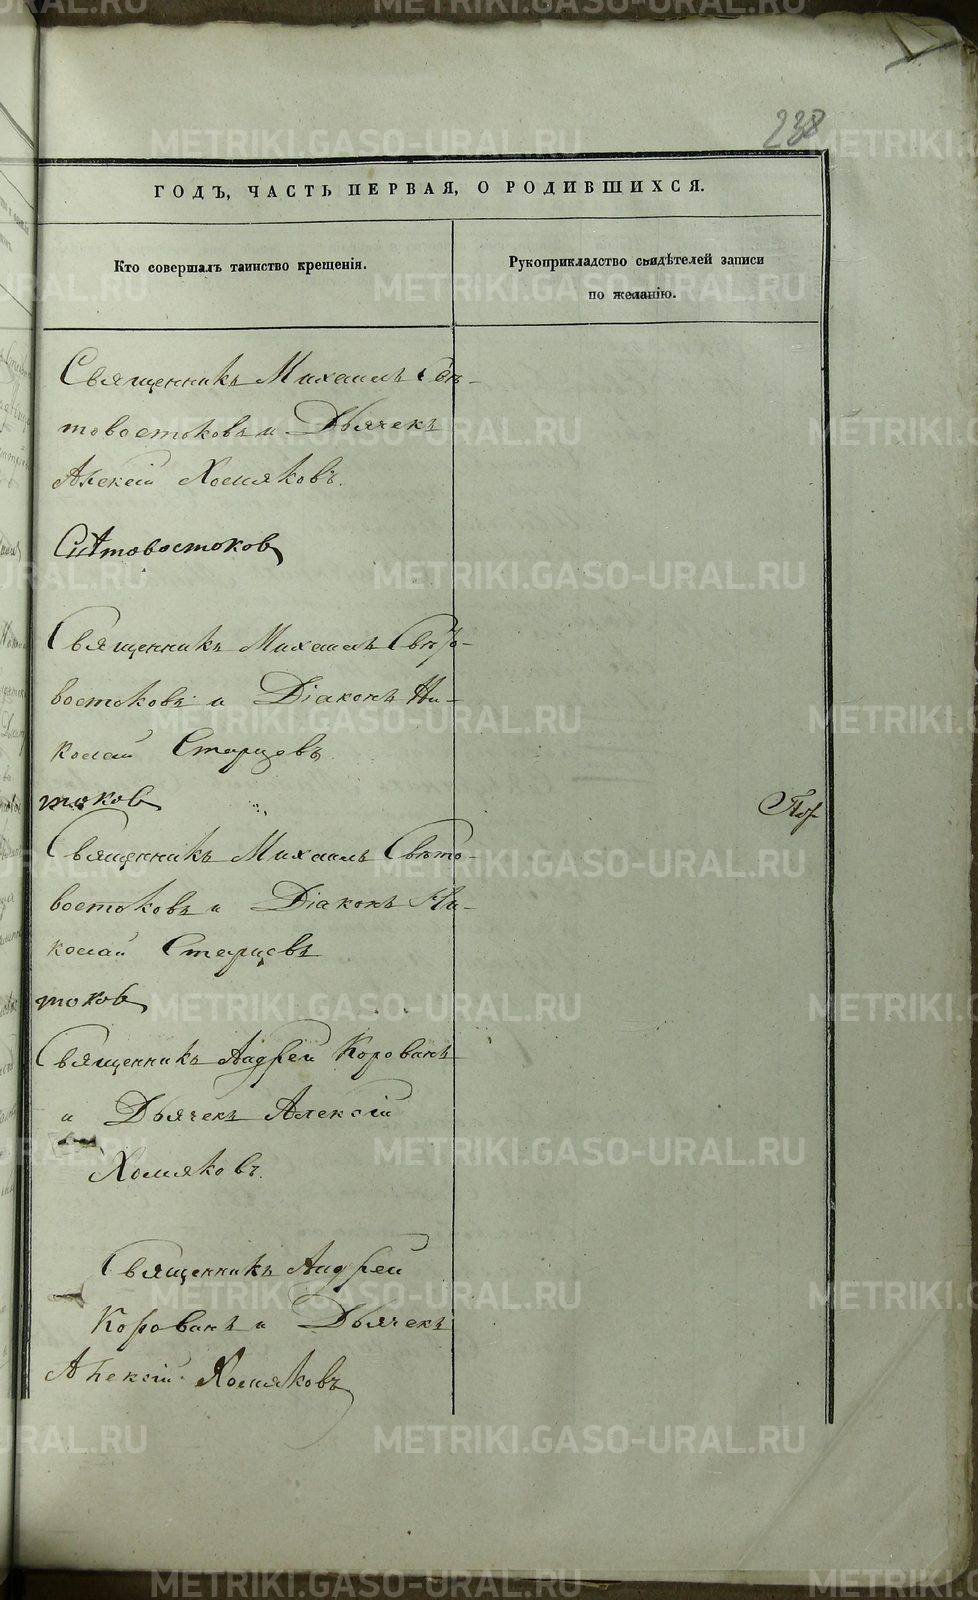 238
ГОДЪ, ЧАСТЬ ПЕРВАЯ, О РОДИВШИХСЯ.
Кто совершалъ таинство крещенія.
Рукоприкладство свидѣтелей записи
по желанію.
Священникъ Михаилъ Свѣ-
товостоковъ и Дьячекъ
Алексій Хомяковъ.
Свѣтовостоков
Священникъ Михаилъ Свѣто-
востоковъ и Діаконъ Ни-
колай Старцевъ
токов
Священникъ Михаилъ Свѣто-
востоковъ и Діаконъ Ни-
колай Старцевъ
токов
Священникъ Андрей Корован
и Дьячекъ Алексій
Хомяковъ.
Священникъ Андрей
Корованъ и Дьячекъ
Алексій Хомяковъ
METRIKI.GASO-URAL.RU